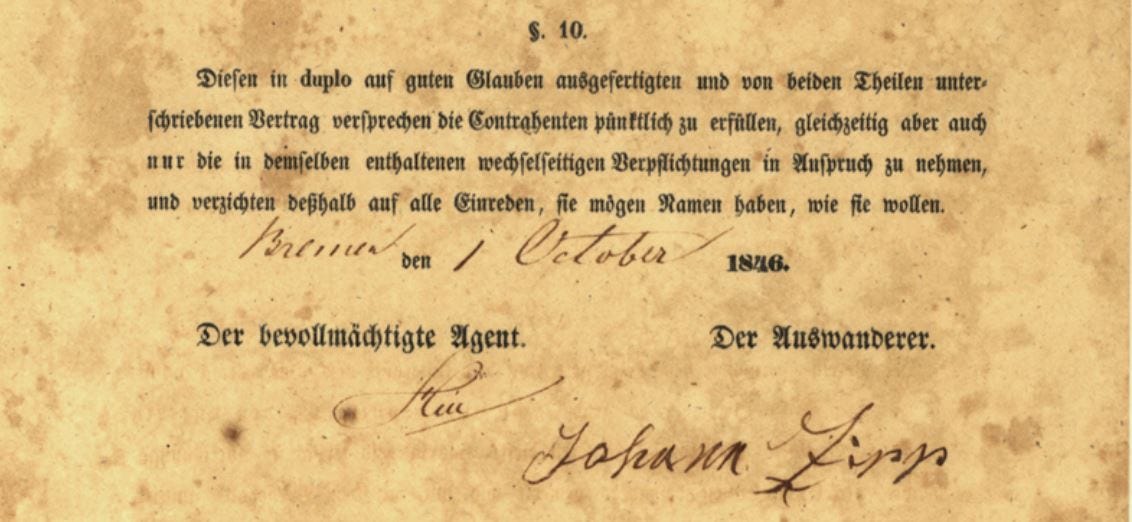 §. 10.
Diesen in duplo auf guten Glauben ausgefertigten und von beiden Theilen unter-
schriebenen Vertrag versprechen die Contrahenten pünktlich zu erfüllen, gleichzeitig aber auch
nur die in demselben enthaltenen wechselseitigen Verpflichtungen in Anspruch zu nehmen,
und verzichten deßhalb auf alle Einreden, sie mögen Namen haben, wie sie wollen.
Bremen den 1 October 1846.
Der bevollmächtigte Agent. Der Auswanderer.
Johann Zipp